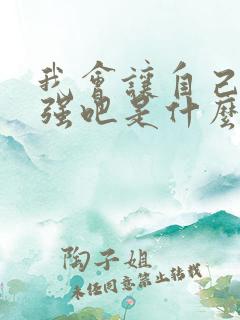 我會讓自己
強吧是什麼
陶子姐
未任同意禁止转载